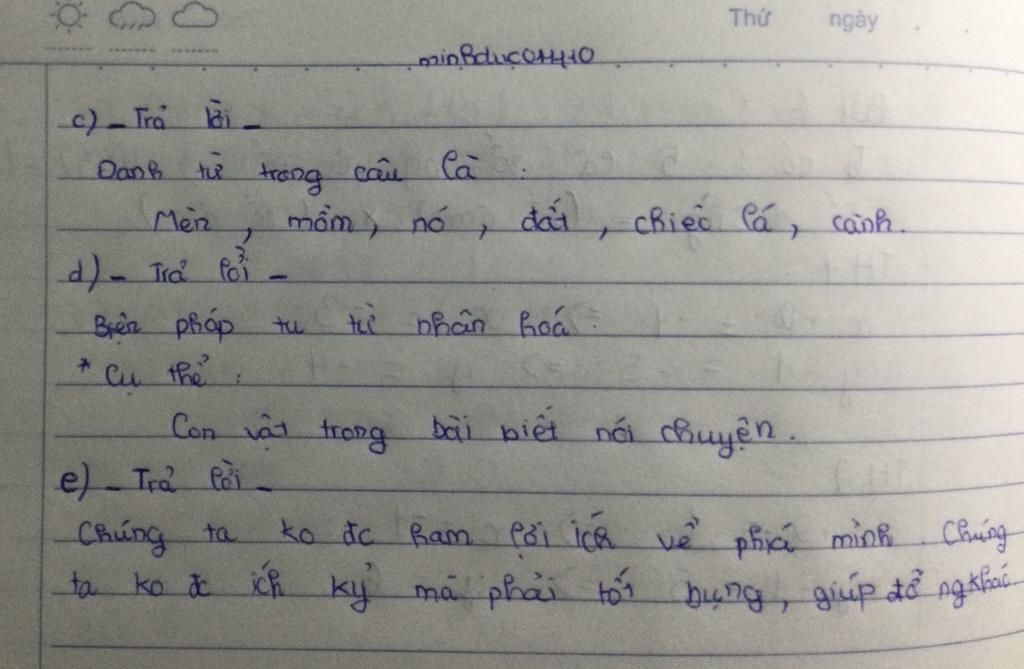 Thứ ngày
minhduc01410
c) - Trả lời -
Danh từ trong câu là :
Mèn, mồm, nó, đất, chiếc lá, cành.
d) - Trả lời -
Biện pháp tu từ nhân hoá.
* Cụ thể :
Con vật trong bài biết nói chuyện.
e) - Trả lời -
Chúng ta ko đc ham lợi ích về phía mình. Chúng
ta ko đc ích kỷ mà phải tốt bụng, giúp đỡ ng khác